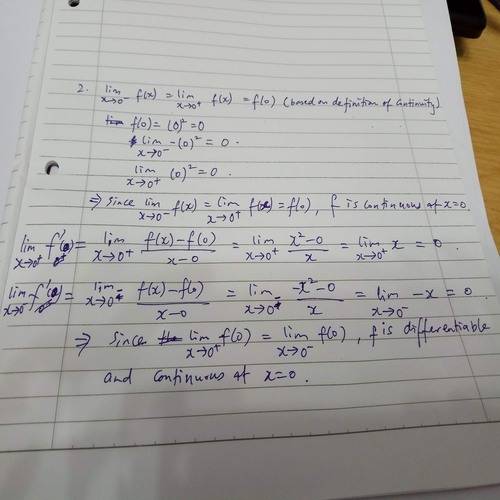 2. lim x→0⁻ f(x) = lim x→0⁺ f(x) = f(0) (based on definition of continuity)
f(0) = (0)² = 0
lim x→0⁻ -(0)² = 0.
lim x→0⁺ (0)² = 0.
⇒ since lim x→0⁻ f(x) = lim x→0⁺ f(x) = f(0), f is continuous at x=0.
lim x→0⁺ f'(0) = lim x→0⁺ (f(x)-f(0))/(x-0) = lim x→0⁺ (x²-0)/x = lim x→0⁺ x = 0.
lim x→0⁻ f'(0) = lim x→0⁻ (f(x)-f(0))/(x-0) = lim x→0⁻ (-x²-0)/x = lim x→0⁻ -x = 0.
⇒ since lim x→0⁺ f(0) = lim x→0⁻ f(0), f is differentiable
and continuous at x=0.